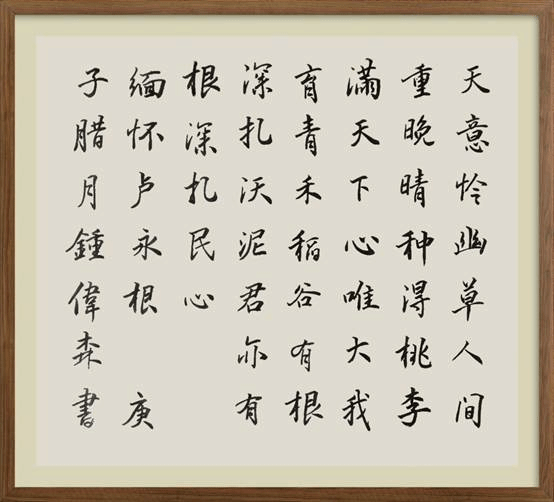 天意怜幽草人间
重晚晴种得桃李
满天下心唯大我
育青禾稻谷有根
深扎沃泥君亦有
根深扎民心
缅怀卢永根 庚
子腊月鍾偉森書